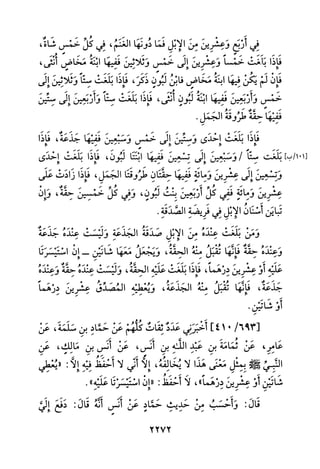 فِي أَرْبَعٍ وَعِشْرِينَ مِنَ الْإِبْلِ فَمَا دُونَهَا الْغَنَمُ، فِي كُلِّ خَمْسٍ شَاةٌ،
فَإِذَا بَلَغَتْ خَمْساً وَعِشْرِينَ إِلَى خَمْسٍ وَثَلاثِينَ فَفِيهَا ابْنَةُ مَخَاضٍ أُنْثَى،
فَإِنْ لَمْ يَكُنْ فِيهَا ابْنَةُ مَخَاضٍ فَابْنُ لَبُونٍ ذَكَرٌ، فَإِذَا بَلَغَتْ سِتًّا وَثَلاثِينَ إِلَى
خَمْسٍ وَأَرْبَعِينَ فَفِيهَا ابْنَةُ لَبُونٍ أُنْثَى، فَإِذَا بَلَغَتْ سِتًّا وَأَرْبَعِينَ إِلَى سِتِّينَ
فَفِيْهَا حِقَّةٌ طَرُوقَةُ الْجَمَلِ.
فَإِذَا بَلَغَتْ إِحْدَى وَسِتِّينَ إِلَى خَمْسٍ وَسَبْعِينَ فَفِيْهَا جَذَعَةٌ، فَإِذَا
بَلَغَتْ سِتًّا / وَسَبْعِينَ إِلَى تِسْعِينَ فَفِيْهَا ابْنَتَا لَبُونَ، فَإِذَا بَلَغَتْ إِحْدَى [١٠١/ب]
وَتِسْعِينَ إِلَى عِشْرِينَ وَمِائَةٍ فَفِيهَا حِقَّتَانِ طَرُوقَتَا الْجَمَلِ، فَإِذَا زَادَتْ عَلَى
عِشْرِينَ وَمِائَةٍ فَفِي كُلِّ أَرْبَعِيْنَ بِنْتُ لَبُونٍ، وَفِي كُلِّ خَمْسِينَ حِقَّةٌ، وَإِنْ
تَبَايَنَ أَسْنَانُ الْإِبْلِ فِي فَرِيضَةِ الصَّدَقَةِ.
وَمَنْ بَلَغَتْ عِنْدَهُ مِنَ الْإِبْلِ صَدَقَةُ الْجَذَعَةِ وَلَيْسَتْ عِنْدَهُ جَذَعَةٌ
وَعِنْدَهُ حِقَّةٌ فَإِنَّهَا تُقْبَلُ مِنْهُ الْحِقَّةُ، وَيَجْعَلُ مَعَهَا شَاتَيْنِ ــ إِنِ اسْتَيْسَرَتَا
عَلَيْهِ أَوْ عِشْرِيْنَ دِرْهَماً، فَإِذَا بَلَغَتْ عَلَيْهِ الْحِقَّةُ، وَلَيْسَتْ عِنْدَهُ حِقَّةٌ وَعِنْدَهُ
جَذَعَةٌ، فَإِنَّهَا تُقْبَلُ مِنْهُ الْجَذَعَةُ، وَيُعْطِيْهِ الْمُصَّدِّقُ عِشْرِيْنَ دِرْهَماً
أَوْ شَاتَيْنِ.
[٤١٠/٦٩٣] أَخْبَرَنِي عَدَدٌ ثِقَاتٌ كُلُّهُمْ عَنْ حَمَّادِ بنِ سَلَمَةَ، عَنْ
عَامِرٍ، عَنْ ثُمَامَةَ بنِ عَبْدِ اللَّهِ بنِ أَنَسٍ، عَنْ أَنَسِ بنِ مَالِكٍ، عَنِ
النَّبِيِّ ﷺ بِمِثْلِ مَعْنَى هَذَا لا يُخَالِفُهُ، إِلَّا أَنِّي لا أَحْفَظُ فِيْهِ: إِلَّا: «يُعْطِي
شَاتَيْنِ أَوْ عِشْرِيْنَ دِرْهَماً»، لَا أَحْفَظُ: «إِنِ اسْتَيْسَرَتَا عَلَيْهِ».
قَالَ: وَأَحْسَبُ مِنْ حَدِيثِ حَمَّادٍ عَنْ أَنَسٍ أَنَّهُ قَالَ: دَفَعَ إِلَيَّ
٢٢٧٢